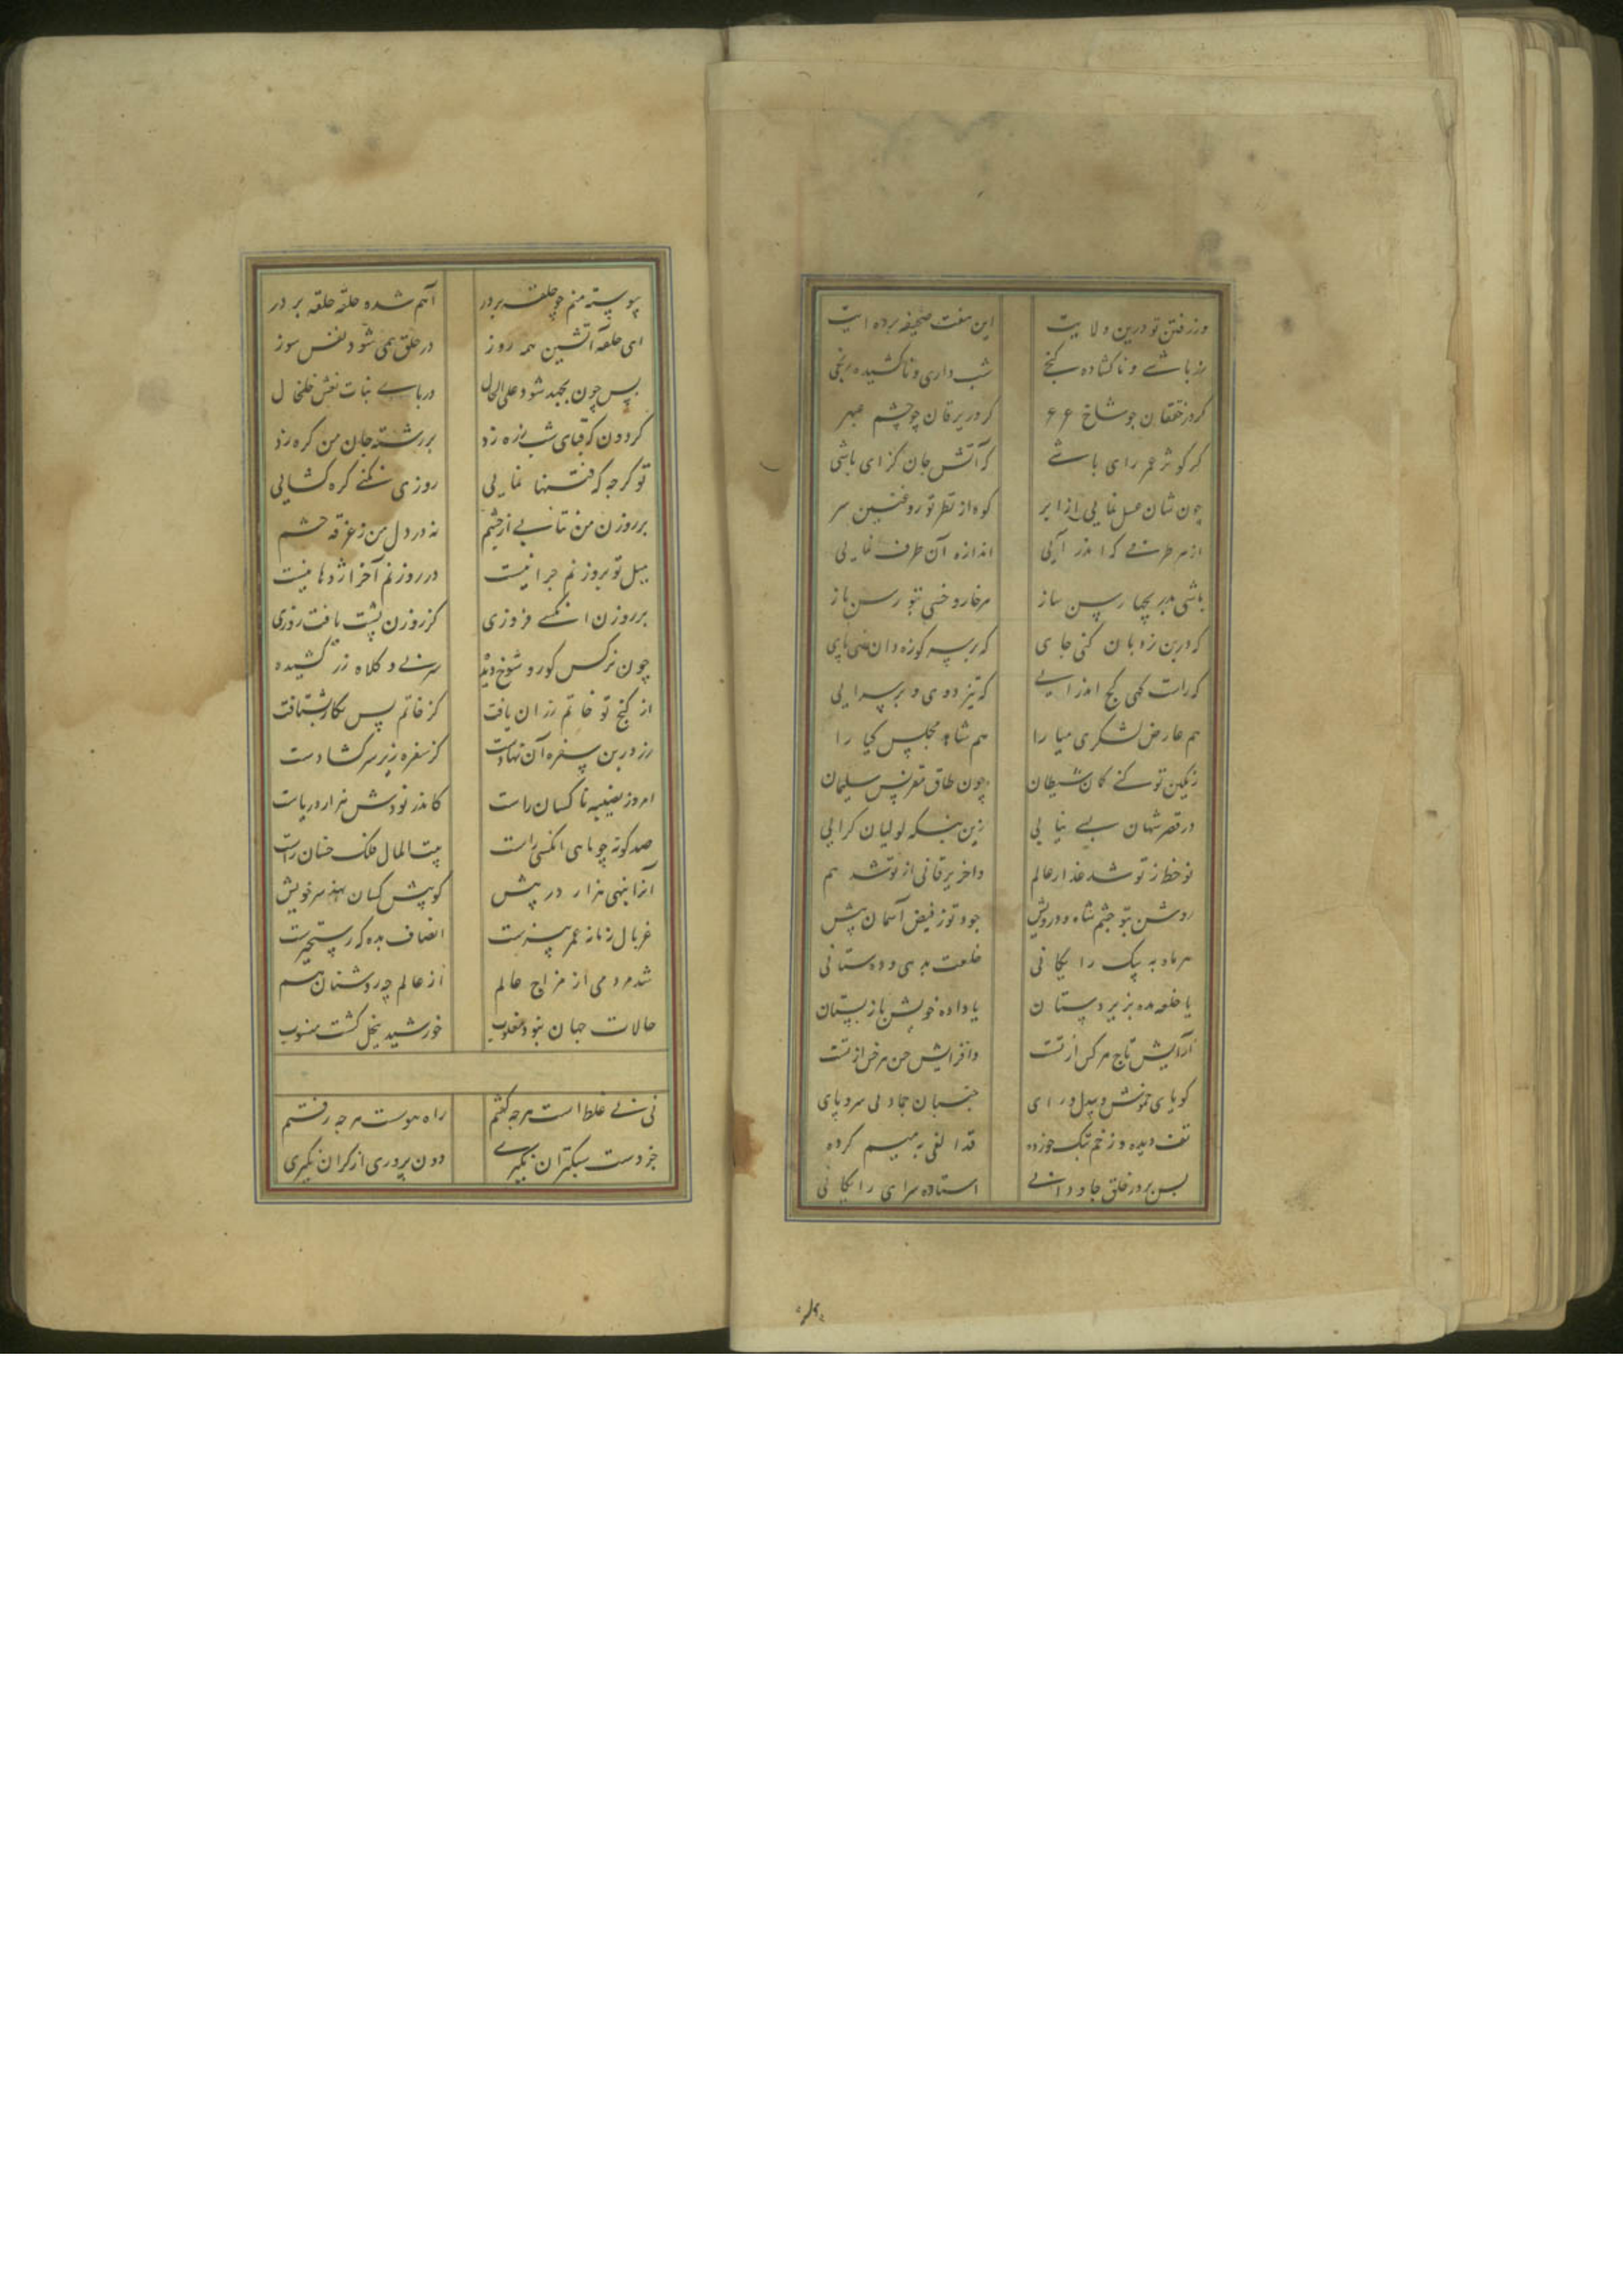 وز رفتن تو درین ولایت این هفت صحیفه پرده ایت
زر باشے و ناکشاده کنج شب داری و ناکشیده رنجی
کر در خفقان چو شاخ عرعر کر در یرقان چو چشم عبهر
کر کوثر عمر رای باشے کر آتش جان کزای باشی
چون شان عسل نمایی از ابر کوه از نظر تو روغنین سر
از هر طرفے که اندر آیی اندازه آن طرف نمایی
باشی رسن ساز هر خار و خسی بتو رسن باز
که درین نردبان کنی جای که بر سر کوزه دان پای
که راست کهی کج اندر ایے که تیز دوی و بر سر ایی
هم عارض لشکری میا را هم شاهد مجلس کیا را
رنکین تو کنے کمان شیطان چون طاق مقرنس سلیمان
در قصر شهان بے نیایی زین بنکه لولیان کرایی
نو خط ز تو شد عذار عالم واخر یرقانی از تو شد هم
روشن بتو چشم شاه و درویش جود تو ز فیض آسمان پیش
هر ماه به پیک رایکانی خلعت بدهی و واستانی
یا خلعه مده بزیر دستان یا داده خویش باز مستان
آرایش تاج هر کس از تست وافزایش حسن هر خس از تست
کویای خموش و بیدل و رای جنبان جماد بی سر و پای
تف دیده و زخم قد الفی به میم کرده
بس بر در خلق جاودانے استاده سرای رایکانی
پیوسته منم چو حلقه بر در آهم شده حلقه حلقه بر در
ای حلقه آتشین همه روز در حلق همی شود نفس سوز
پس چون بجهد شود علی الحال در پاے بنات نعش خلخال
کردون که قبای شب زره زد بر رشته جان من کره زد
تو کرچه کرفتنها نمایی روزی نکنے کره کشایی
بر روزن من نتابے از خشم نه در دل من ز غرفه چشم
میل تو بروزنم چرا نیست در روزنم آخر اژدها نیست
بر روزن انکسے فروزی کز روزن پشت یافت روزی
چون نرکس کور و شوخ دیده سر نے و کلاه زر کشیده
از کنج تو خاتم زر آن یافت کز خاتم پس بکار بشتافت
زر در بن سفره آن نهادست کز سفره زیر سر کشادست
امروز نصیبه ناکسان راست کاندر نودش هزار دریاست
صد کونه چو ماهی انکسی راست بیت المال فلک خسان راست
آنرا بنهی هزار در پیش کو پیش کسان نهد سر خویش
غربال زمانه عمر بیزست انصاف بده که رستخیزست
شد مردمی از مزاج عالم از عالم چه روشنان هم
حالات جهان بنود مقلوب خورشید ببخل کشت منسوب
نی نے غلط است هر چه کفتم راه هوست هر چه رفتم
جز دست سبکتران نکیرے دون پروری از کران نکیری